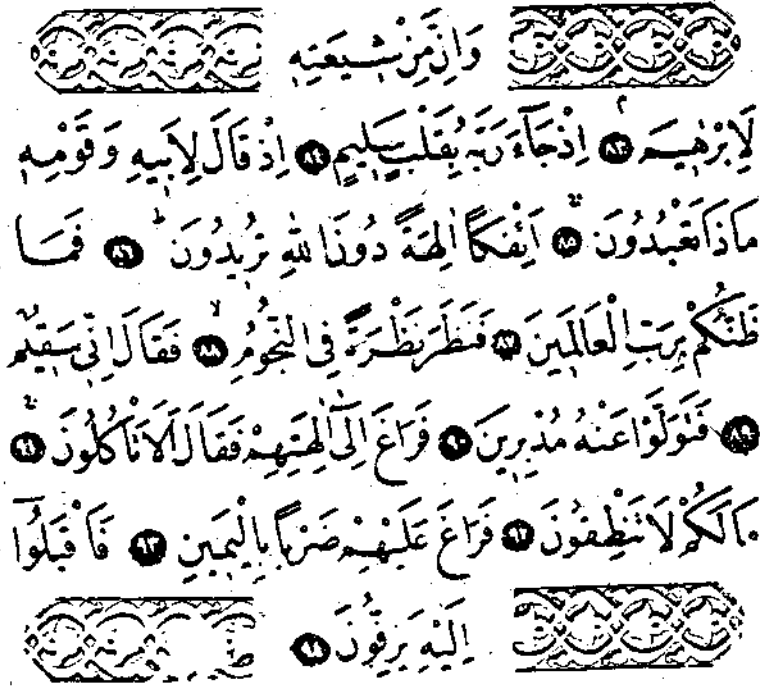 وَاِنَّ مِنْ شٖيعَتِهٖ
لَاِبْرٰهٖيمَۢ ﴿٨٣﴾ اِذْ جَٓاءَ رَبَّهُ بِقَلْبٍ سَلٖيمٍ ﴿٨٤﴾ اِذْ قَالَ لِاَبٖيهِ وَقَوْمِهٖ
مَاذَا تَعْبُدُونَ ﴿٨٥﴾ اَئِفْكًا اٰلِهَةً دُونَ اللّٰهِ تُرٖيدُونَ ﴿٨٦﴾ فَمَا
ظَنُّكُمْ بِرَبِّ الْعَالَمٖينَ ﴿٨٧﴾ فَنَظَرَ نَظْرَةً فِى النُّجُومِ ﴿٨٨﴾ فَقَالَ اِنّٖى سَقٖيمٌ
﴿٨٩﴾ فَتَوَلَّوْا عَنْهُ مُدْبِرٖينَ ﴿٩٠﴾ فَرَاغَ اِلٰٓى اٰلِهَتِهِمْ فَقَالَ اَلَا تَاْكُلُونَ ﴿٩١﴾
مَالَكُمْ لَا تَنْطِقُونَ ﴿٩٢﴾ فَرَاغَ عَلَيْهِمْ ضَرْبًا بِالْيَمٖينِ ﴿٩٣﴾ فَاَقْبَلُٓوا
اِلَيْهِ يَزِفُّونَ ﴿٩٤﴾